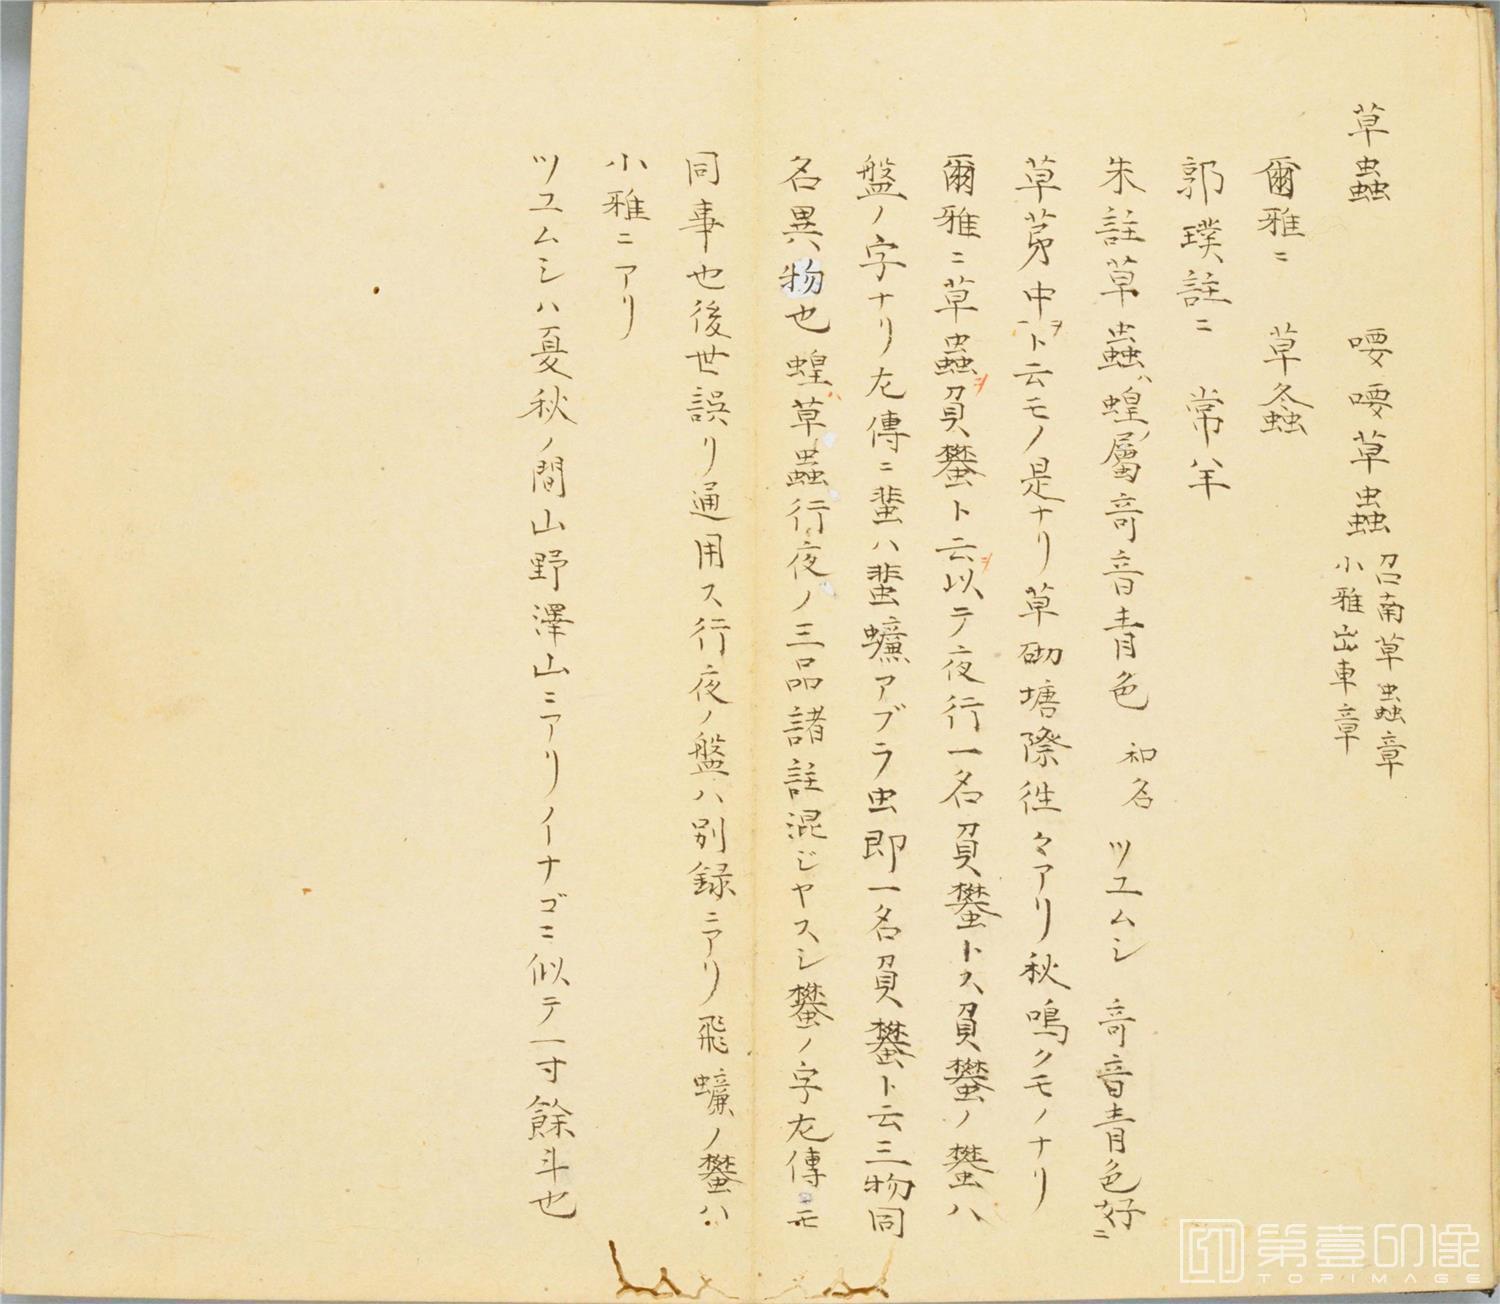 草蟲　喓喓草蟲 召南草蟲章
小雅出車章
爾雅ニ　草螽
郭璞註ニ　常羊
朱註草蟲ハ蝗ノ屬奇音青色　和名　ツユムシ　奇音青色好ニ
草茅中ヲト云モノ是ナリ草砌塘際徃々アリ秋鳴クモノナリ
爾雅ニ草蟲ヲ負蠜ト云ヲ以テ夜行一名負蠜トス負蠜ノ蠜ハ
盤ノ字ナリ左傳ニ蜚ハ蜚蠊アブラ虫即一名負蠜ト云三物同
名異物也蝗ハ草蟲行夜ノ三品諸註混ジヤスシ蠜ノ字左傳ニモ
同事也後世誤リ通用ス行夜ノ盤ハ別録ニアリ飛蠊ノ蠜ハ
小雅ニアリ
ツユムシハ夏秋ノ間山野澤山ニアリイナゴニ似テ一寸餘斗也
第壹印像
TOPIMAGE